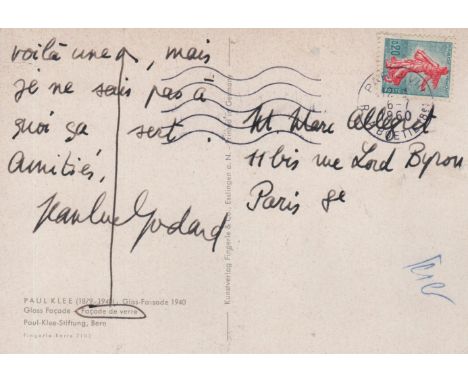 voilà une , mais
je ne sais pas à
quoi ça sert.
Amitiés,
Jean Luc Godard
M. Marc Allégret
11 bis rue Lord Byron
Paris 8e
0,20
POSTES
PARIS VIII
1960
R. LA BOETIE (8e)
Kunstverlag Fingerle & Co., Esslingen a. N. - Printed in Germany
PAUL KLEE (1879-1940) Glas-Fassade 1940
Glass Façade - Façade de verre
Paul-Klee-Stiftung, Bern
Fingerle-Karte